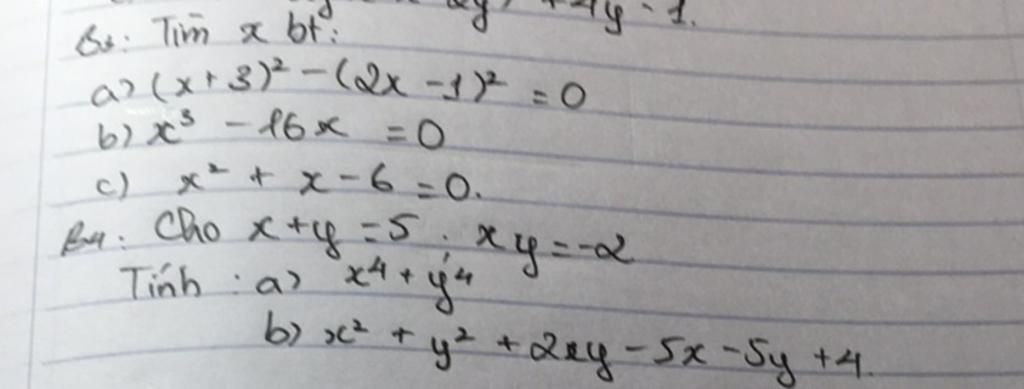 +4y - 1.
B3: Tìm x bt:
a) (x+3)² - (2x-1)² = 0
b) x³ - 16x = 0
c) x² + x - 6 = 0.
B4: Cho x+y=5. xy=-2
Tính: a) x⁴ + y⁴
b) x² + y² + 2xy - 5x - 5y + 4.